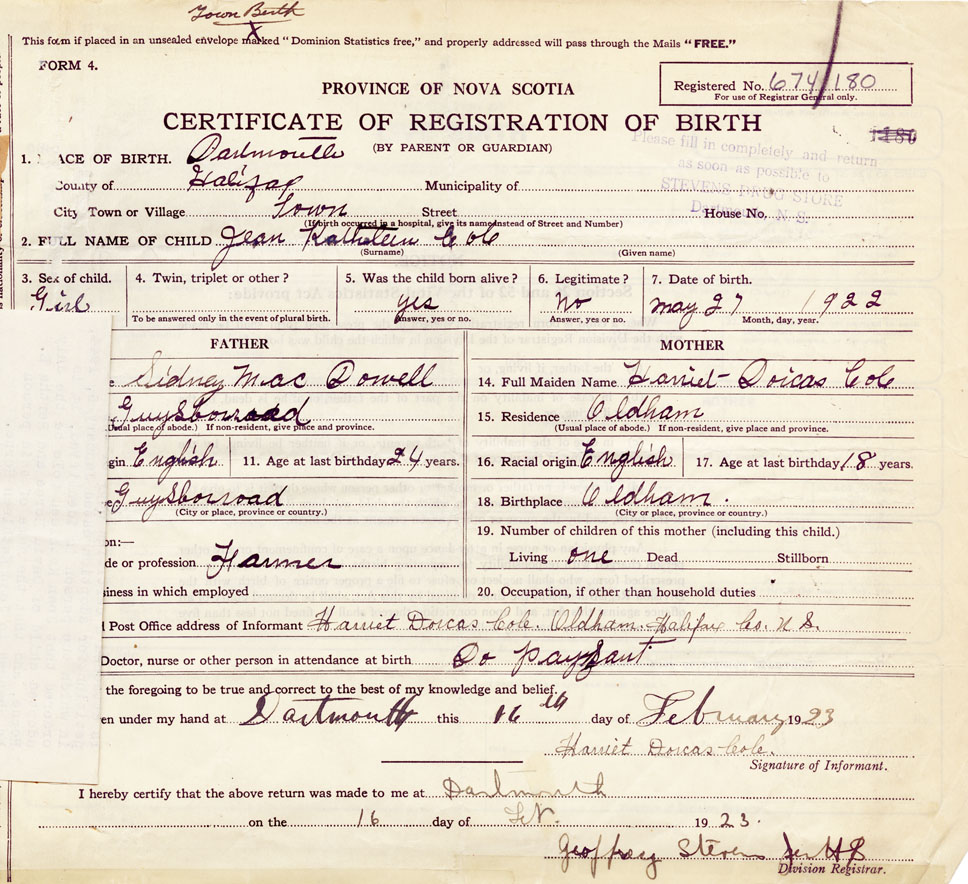 Town Birth
This form if placed in an unsealed envelope marked "Dominion Statistics free," and properly addressed will pass through the Mails "FREE."
FORM 4.
Registered No. 674/180
For use of Registrar General only.
PROVINCE OF NOVA SCOTIA
CERTIFICATE OF REGISTRATION OF BIRTH
1180
(BY PARENT OR GUARDIAN)
Please fill in completely and return
as soon as possible to
STEVENS DRUG STORE
Dartmouth, N. S.
1. PLACE OF BIRTH. Dartmouth
County of Halifax Municipality of
City Town or Village Town Street House No.
(If birth occurred in a hospital, give its name instead of Street and Number)
2. FULL NAME OF CHILD Jean Kathleen Cole
(Surname) (Given name)
3. Sex of child. 4. Twin, triplet or other? 5. Was the child born alive? 6. Legitimate? 7. Date of birth.
Girl yes No May 27 1922
To be answered only in the event of plural birth. Answer, yes or no. Answer, yes or no. Month, day, year.
FATHER MOTHER
e Sidney Mac Dowell 14. Full Maiden Name Harriet Dorcas Cole
Guysboroad 15. Residence Oldham
Usual place of abode.) If non-resident, give place and province. (Usual place of abode.) If non-resident, give place and province.
gin English 11. Age at last birthday 24 years. 16. Racial origin English 17. Age at last birthday 18 years.
Guysboroad 18. Birthplace Oldham.
(City or place, province or country.) (City or place, province or country.)
on:— 19. Number of children of this mother (including this child.)
de or profession Farmer Living one Dead Stillborn
siness in which employed 20. Occupation, if other than household duties
Post Office address of Informant Harriet Dorcas Cole. Oldham. Halifax Co. N S.
Doctor, nurse or other person in attendance at birth Do Payzant
the foregoing to be true and correct to the best of my knowledge and belief.
en under my hand at Dartmouth this 16th day of February 1923
Harriet Dorcas Cole.
Signature of Informant.
I hereby certify that the above return was made to me at Dartmouth
on the 16 day of 1923.
Geoffrey Stevens per HS
Division Registrar.